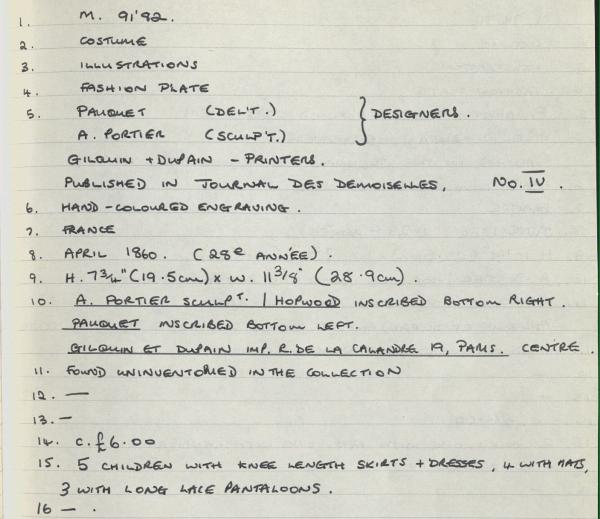 1. M. 91'92.
2. COSTUME
3. ILLUSTRATIONS
4. FASHION PLATE
5. PAUQUET (DEL'T.) } DESIGNERS.
A. PORTIER (SCULP'T.)
GILQUIN + DUPAIN - PRINTERS.
PUBLISHED IN JOURNAL DES DEMOISELLES, No. IV.
6. HAND-COLOURED ENGRAVING.
7. FRANCE
8. APRIL 1860. (28e ANNÉE).
9. H. 7¾" (19.5cm) x W. 11 3/8" (28.9cm).
10. A. PORTIER SCULPT. / HOPWOOD INSCRIBED BOTTOM RIGHT.
PAUQUET INSCRIBED BOTTOM LEFT.
GILQUIN ET DUPAIN IMP. R. DE LA CALANDRE 19, PARIS. CENTRE.
11. FOUND UNINVENTORIED IN THE COLLECTION
12. —
13. —
14. C. £6.00
15. 5 CHILDREN WITH KNEE LENGTH SKIRTS + DRESSES, 4 WITH HATS,
3 WITH LONG LACE PANTALOONS.
16 — .